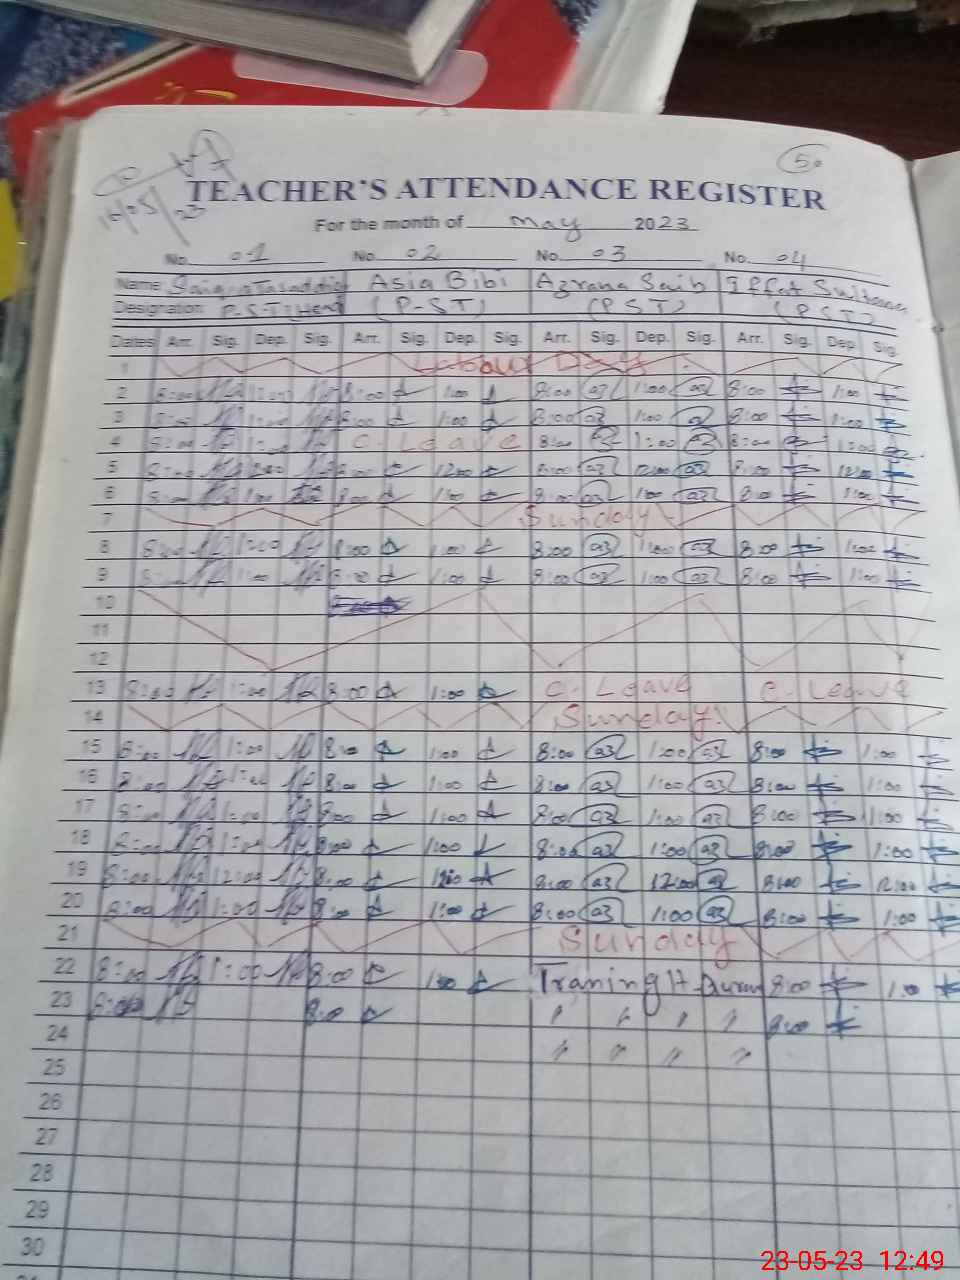 50
16/05/23
TEACHER'S ATTENDANCE REGISTER
For the month of May 2023
No. 01 No. 02 No. 03 No. 04
Name: Asia Bibi Azrana Saib Iffat Sultana
Designation: P.S.T: Head (P-ST) (PST) (PST)
Dates Arr. Sig. Dep. Sig. Arr. Sig. Dep. Sig. Arr. Sig. Dep. Sig. Arr. Sig. Dep Sig.
1 Labour Day
2 8:00 1:00 8:00 1:00 8:00 1:00 8:00 1:00
3 8:00 1:00 8:00 1:00 8:00 1:00 8:00 1:00
4 8:00 1:00 C. Leave 8:00 1:00 8:00 1:00
5 8:00 8:00 12:00 8:00 12:00 8:00 12:00
6 8:00 1:00 8:00 1:00 8:00 1:00 8:00 1:00
7 Sunday
8 8:00 1:00 8:00 1:00 8:00 1:00 8:00 1:00
9 8:00 1:00 8:00 1:00 8:00 1:00 8:00 1:00
10
11
12
13 8:00 1:00 8:00 1:00 C. Leave C. Leave
14 Sunday.
15 8:00 1:00 8:00 1:00 8:00 1:00 8:00 1:00
16 8:00 1:00 8:00 1:00 8:00 1:00 8:00 1:00
17 8:00 1:00 8:00 1:00 8:00 1:00 8:00 1:00
18 8:00 1:00 8:00 1:00 8:00 1:00 8:00 1:00
19 8:00 12:00 8:00 12:00 8:00 12:00 8:00 12:00
20 8:00 1:00 8:00 1:00 8:00 1:00 8:00 1:00
21 Sunday
22 8:00 1:00 8:00 1:00 Traning 8:00 1:0
23 8:00 8:00 " " " " 8:00
24 " " " "
25
26
27
28
29
30
23-05-23 12:49